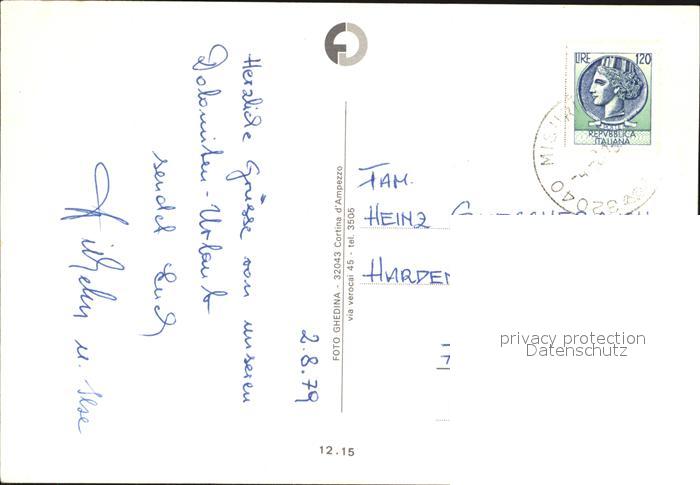 2.8.79
Herzliche Grüsse von unseren
Dolomiten-Urlaub
sendet Euch
Wilhelm u. Ilse
FOTO GHEDINA - 32043 Cortina d'Ampezzo
via verocai 45 - tel. 3505
12.15
LIRE 120
REPVBBLICA
ITALIANA
32040 MISURINA
FAM.
HEINZ
HARDEN
privacy protection
Datenschutz